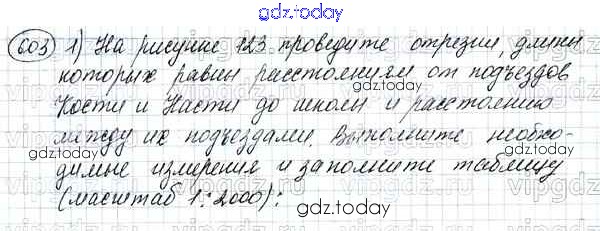 gdz.today
603 1) На рисунке 123 проведите отрезки, длины
которых равны расстояниям от подъездов
gdz.today
Кости и Насти до школы и расстоянию
между их подъездами. Выполните необхо-
gdz.today
димые измерения и заполните таблицу
(масштаб 1:2000):
gdz.today